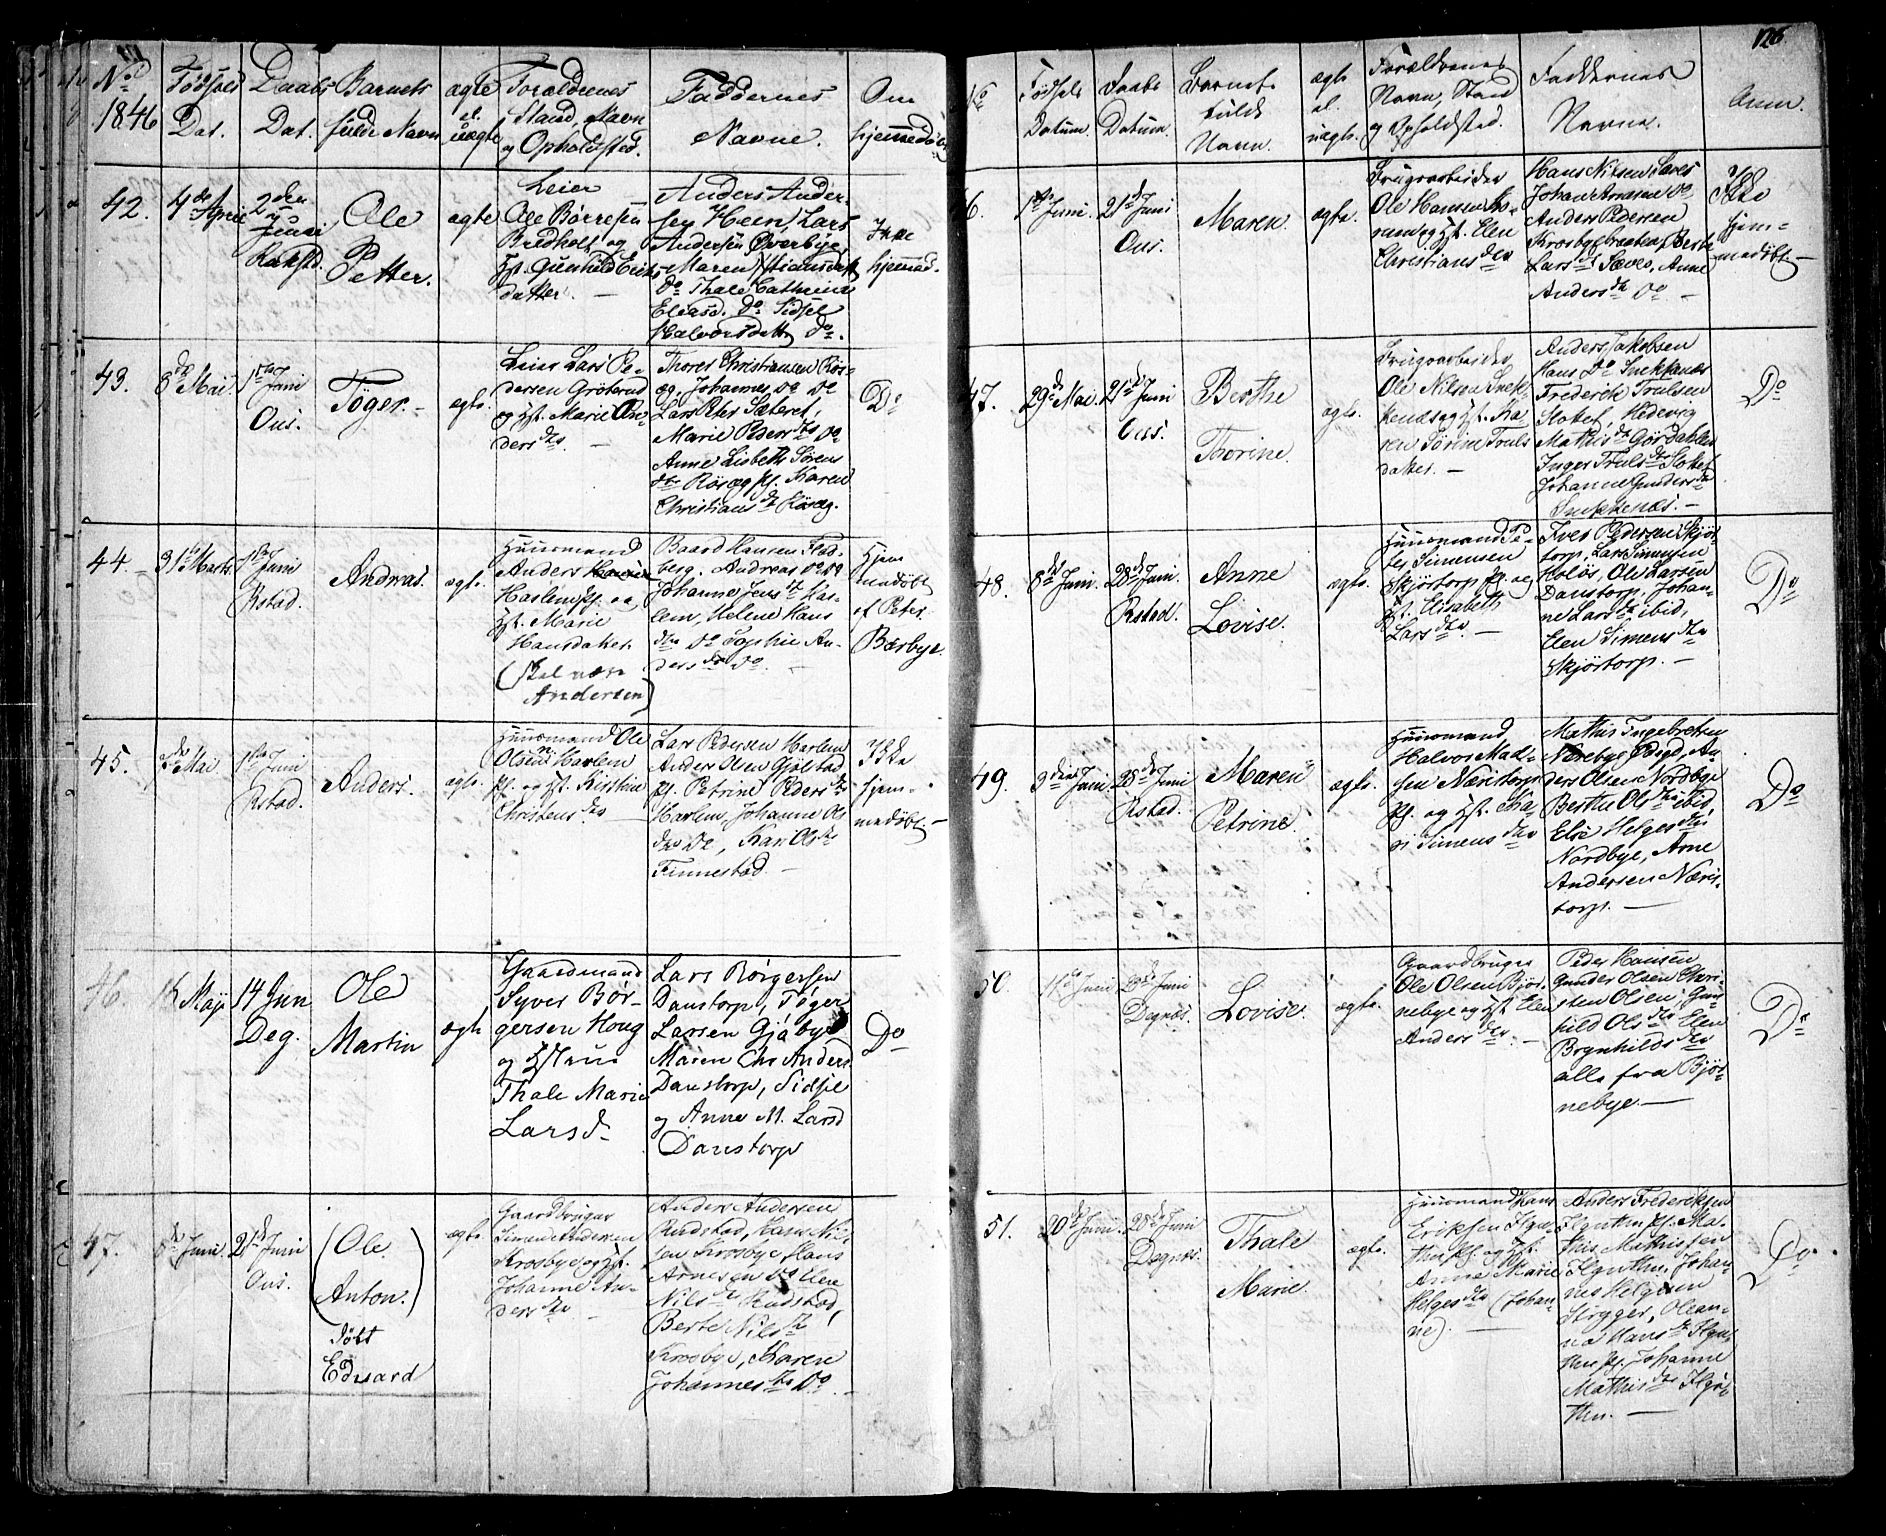 No
1846
Fødsels
Dat.
Daabs
Dat.
Barnets
fulde Navn
ægte
el.
uægte
Forældrenes
Stand, Navn
og Opholdsted.
Faddernes
Navne.
Om
hjemmedøbt
42.
4de April
2den
Juni
Rakstd.
Ole
Petter.
ægte
Leier
Ole Børresen
Bredholt og
Hst. Gunhild Eriks
datter. —
Anders Ander-
sen Heen, Lars
Andersen Øverbye,
Maren
Do Thale Cathrine
Eliasd. Do Sidsel
Halvorsdatt Do.
Ikke
hjemmed.
43.
8de Mai
1ste Juni
Ous.
Tøger. —
ægte.
Leier Lars Pe-
dersen Grøterud
og Hst. Marie An-
ders dtr
Thorer Christiansen Rös-
æg, Johannes Do Do
Lars Peter Sæteret,
Marie Peders dtr Do
Anne Lisbeth Sörens
dtr Rösæg Pl. Karen
Christians dtr Rösæg.
Do
44.
31te Marts
1ste Juni
Rstad.
Andreas.
ægte.
Huusmand
Anders Hansen
Harlem Pl. og
Hst. Marie
Hansdatter.
(skal være
Andersen)
Baard Hansen Flad-
berg. Andreas Do Do
Johanne Jens dtr Har-
lem, Helene Hans
dtr Do Sophie An-
ders dtr Do. —
Hjem
medöbt
af Peter
Bærbye.
45.
Mai
1ste Juni
Rstad.
Anders.
ægte.
Huusmand Ole
Olsen Harlem
Pl. og Hst. Kirstine
Christens dtr —
Lars Pedersen Harlem
Anders Olsen Gjølstad
Pl. Petrine Peders dtr
Harlem, Johanne Ols
dtr Do, Kari Ols dtr
Finnestad. —
Ikke
hjem-
medøbt —
46.
Maji
14 Jun
Deg.
Ole
Martin
ægte
Gaardmand
Syver Bør-
gersen Houg
og Hstru
Thale Marie
Larsd
Lars Börgersen
Danstorp, Töger
Larsen Gjåbye
Maren Chr Anders
Danstorp, Sidsel
og Anne M. Larsd
Danstorp
Do
47.
8de Juni
21de Juni
Ous.
(Ole
Anton.)
Døbt
Eduard
ægte.
Gaardbruger
Simen Andersen
Krosbye og Hst.
Johanne An-
ders dtr —
Anders Andersen
Rudstad, Hans Nil-
sen Krosbye, Hans
Arnesen Do Elene
Nils dtr Rudstad,
Berte Nils dtr
Krosbye, Maren
Johannes dtr Do —
126
No
Fødsels
Datum.
Daabs
Datum.
Barnets
fulde
Navn.
ægte
el.
uægte.
Forældrenes
Navn, Stand
og Opholdsted.
Faddernes
Navne.
Anm.
46.
1ste Juni.
21de Juni
Ous.
Maren
ægte.
Brugsarbeider
Ole Hansen
og Hst. Elen
Christians dtr
Hans Nilsen Sæves
Johan Arnesen Do
Anders Pedersen
Krosbyebraaten, Berte
Lars dtr Sæves, Anne
Anders dtr Do —
Ikke
hjem-
medøbt —
47.
29de Mai.
21de Juni
Ous.
Berthe
Thorine.
ægte.
Brugsarbeider
Ole Nilsen Snek-
kenæs og Hst. Ka-
ren Sörine Truls
datter. —
Anders Jakobsen
Hans Do Snekkenæs
Frederik Trulsen
Slottet, Hedevig
Mathis dtr Gördahlen
Inger Truls dtr Slottet
Johanne Gunders dtr
Snekkenæs. —
Do
48.
8de Juni.
28de Juni.
Rstad.
Anne
Lovise.
ægte.
Huusmand Pe-
ter Simensen
Skjörtorp Pl. og
Hst. Elisabeth
Lars dtr. —
Iver Pedersen Skjör-
torp, Lars Simensen
Holøs, Ole Larsen
Danstorp, Johan-
ne Lars dtr ibid,
Elen Simens dtr
Skjörtorp. —
Do
49.
3die Juni
28de Juni
Rstad.
Maren
Petrine.
ægte.
Huusmand
Halvor Mad-
sen Næristorp
Pl. og Hst. Ka-
ri Simens dtr
Mathis Ingebretsen
Nærebye Pl, An-
ders Olsen Nordbye
Berthe Ols dtr ibid,
Else Helges dtr
Nordbye, Arne
Andersen Næris-
torp. —
Do
50.
11te Juni
28de Juni
Degnæs.
Lovise.
ægte.
Gaardbruger
Ole Olsen Bjør-
nebye og Hst. Elen
Anders dtr. —
Peder Hansen
Gunder Olsen Chri-
sten Olsen, Gun-
hild Ols dtr Elen
Brynhilds dtr
alle fra Bjør-
nebye. —
Do
51.
20de Juni.
28de Juni
Degnæs.
Thale
Marie.
ægte.
Huusmand Hans
Eriksen Ilgu-
then Pl. og Hst.
Anne Marie
Helges dtr (Johan-
ne). —
Anders Frederiksen
Ilguthen Pl. Ma-
this Mathissen
Ilguthen, Johan-
nes Helgesen
Strygger, Olean-
na Hans dtr Ilgu-
then Pl. Johanne
Mathis dtr Ilgu-
then. —
Do.